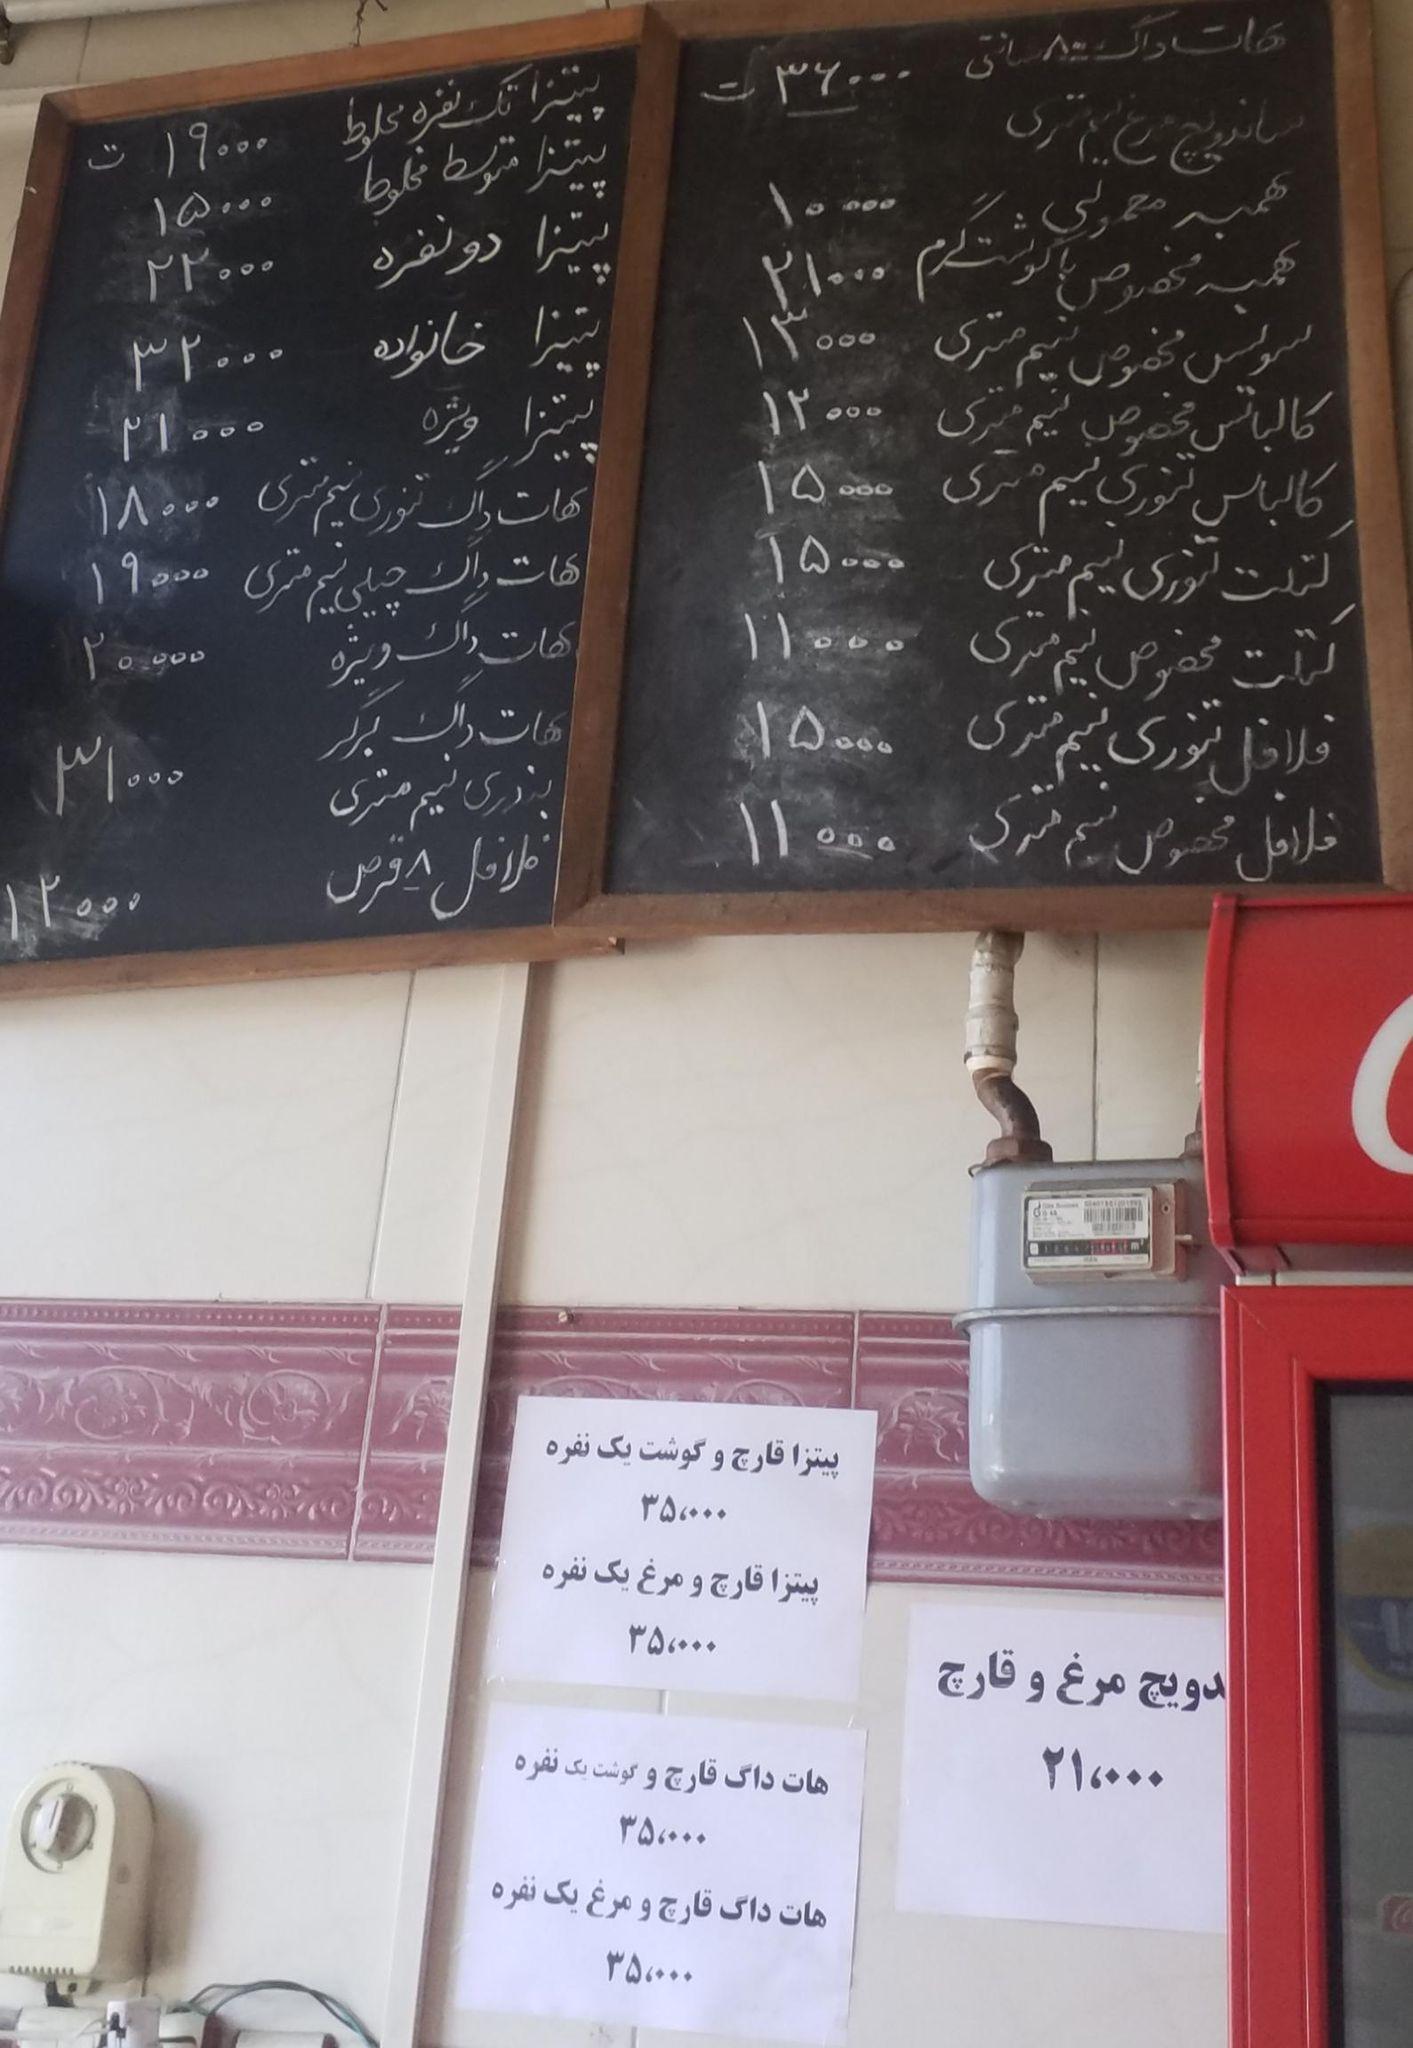 هات داگ ۸۰ سانتی ۳۶۰۰۰ ت
ساندویچ مرغ نیم متری
همبر معمولی ۱۰۰۰۰
همبر مخصوص با گوشت گرم ۲۱۰۰۰
سوسیس مخصوص نیم متری ۱۳۰۰۰
کالباس مخصوص نیم متری ۱۲۰۰۰
کالباس تنوری نیم متری ۱۵۰۰۰
کتلت تنوری نیم متری ۱۵۰۰۰
کتلت مخصوص نیم متری ۱۱۰۰۰
فلافل تنوری نیم متری ۱۵۰۰۰
فلافل مخصوص نیم متری ۱۱۰۰۰
پیتزا تک نفره مخلوط ۱۹۰۰۰ ت
پیتزا متوسط مخلوط ۱۵۰۰۰
پیتزا دو نفره ۲۲۰۰۰
پیتزا خانواده ۳۲۰۰۰
پیتزا ویژه ۲۱۰۰۰
هات داگ تنوری نیم متری ۱۸۰۰۰
هات داگ چیلی نیم متری ۱۹۰۰۰
هات داگ ویژه ۲۰۰۰۰
هات داگ برگر
بندری نیم متری ۳۱۰۰۰
فلافل ۸ قرص ۱۲۰۰۰
پیتزا قارچ و گوشت یک نفره
۳۵،۰۰۰
پیتزا قارچ و مرغ یک نفره
۳۵،۰۰۰
هات داگ قارچ و گوشت یک نفره
۳۵،۰۰۰
هات داگ قارچ و مرغ یک نفره
۳۵،۰۰۰
دویچ مرغ و قارچ
۲۱،۰۰۰